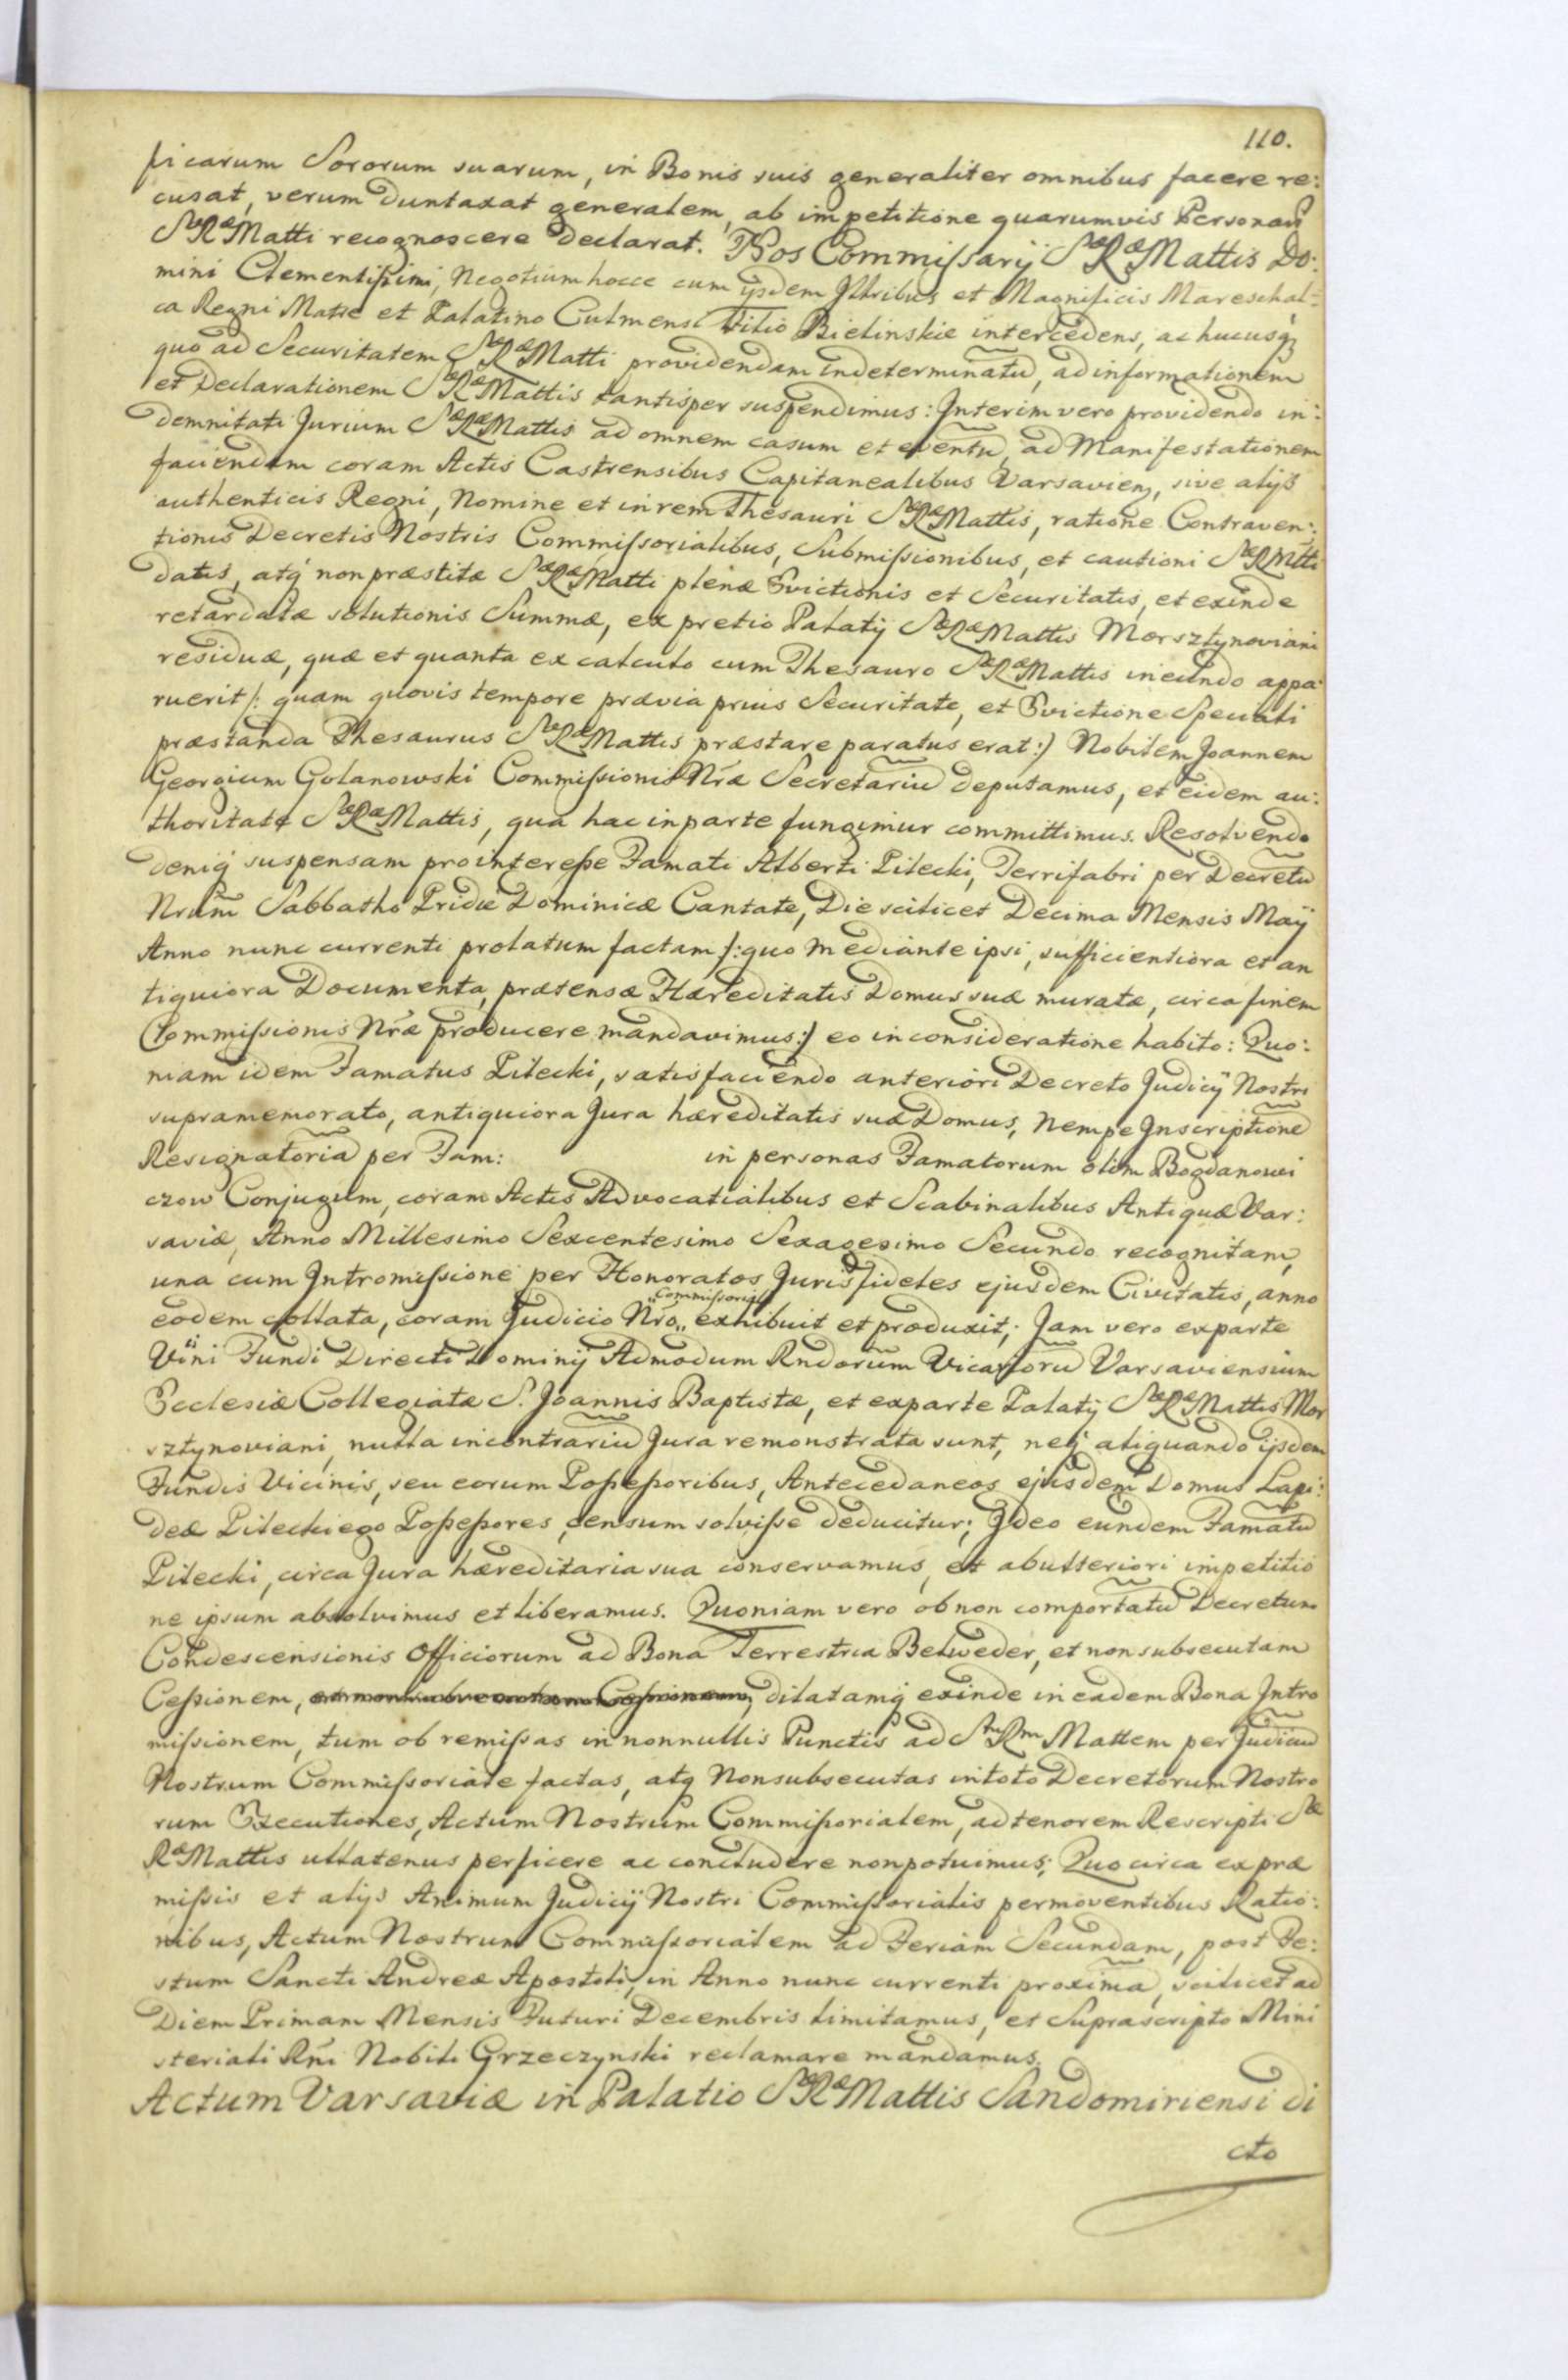 110.
ficarum Sororum suarum, in Bonis suis generaliter omnibus facere re:
cusat, verum duntaxat generalem, ab impetitione quarumvis Personarũ
SæRæMatti recognoscere declarat. Nos Commissarij SæRæMattis Do:
mini Clementissimi, Negotium hocce cum ijsdem Illribus et Magnificis Mareschal-
ca Regni Matre et Palatino Culmensi Filio Bielinskie intercedens, ac hucusq;
quo ad Securitatem SæRæMatti providendam indeterminatũ, ad informationem
et Declarationem SæRæMattis tantisper suspendimus: Interim vero providendo in:
demnitati Jurium SæRæMattis ad omnem casum et eventũ, ad Manifestationem
faciendam coram Actis Castrensibus Capitanealibus Varsavien, sive alijs
authenticis Regni, Nomine et in rem Thesauri SæRæMattis, ratione Contraven:
tionis Decretis Nostris Commissorialibus, Submissionibus, et cautioni SæRMtti
datis, atq nonpræstitæ SæRæMatti plenæ Evictionis et Securitatis, et exinde
retardatæ solutionis Summæ, ex pretio Palatij SæRæMattis Morsztynoviani
residuæ, quæ et quanta ex calculo cum Thesauro SæRæMattis ineundo appa:
ruerit /: quam quovis tempore prævia prius Securitate, et Evictione Speciali
præstanda Thesaurus SæRæMattis præstare paratus erat :/ Nobilem Joannem
Georgium Golanowski Commissionis Nræ Secretariũ deputamus, et eidem au:
thoritate SæRæMattis, qua hac in parte fungimur committimus. Resolvendo
deniq suspensam pro interesse Famati Alberti Pilecki, Ferrifabri per Decretũ
Nrum Sabbatho Pridie Dominicæ Cantate, Die scilicet Decima Mensis Maij
Anno nunc currenti prolatum factam /: quo mediante ipsi, sufficientiora et an
tiquiora Documenta, prætensæ Hæreditatis Domus suæ muratæ, circa finem
Commissionis Nræ producere mandavimus :/ eo in consideratione habito: Quo:
niam idem Famatus Pilecki, satisfaciendo anteriori Decreto Judicij Nostri
supramemorato, antiquiora Jura hæreditatis suæ Domus, nempe Inscriptionẽ
Resignatoriã per Fam: in personas Famatorum olim Bogdanowi
czow Conjugum, coram Actis Advocatialibus et Scabinalibus Antiquæ Var:
saviæ, Anno Millesimo Sexcentesimo Sexagesimo Secundo recognitam,
una cum Intromissione per Honoratos Juris fideles ejusdem Civitatis, anno
eodem collata, coram Judicio Nro „Commissoriali„ exhibuit et produxit; Jam vero ex parte
Vini Fundi Directi Dominij Admodum Rndorum Vicariorũ Varsaviensium
Ecclesiæ Collegiatæ S. Joannis Baptistæ, et ex parte Palatij SæRæMattis Mor
sztynoviani, nulla in contrariũ Jura remonstrata sunt, neq aliquando ijsdem
Fundis Vicinis, seu eorum Possessoribus, Antecedaneos ejusdem Domus Lapi:
deæ Pileckiego Possessores, censum solvisse deducitur; Ideo eundem Famatũ
Pilecki, circa Jura hæreditaria sua conservamus, et ab ulteriori impetitio
ne ipsum absolvimus et liberamus. Quoniam vero ob non comportatũ Decretum
Condescensionis Officiorum ad Bona Terrestria Belweder, et non subsecutam
Cessionem, et non subsecutam Cessionem, dilatamq exinde in eadem Bona Intro
missionem, tum ob remissas in nonnullis Punctis ad SmRm Mattem per Judiciũ
Nostrum Commissoriale factas, atq Non subsecutas in toto Decretorum Nostro
rum Executiones, Actum Nostrum Commissorialem, ad tenorem Rescripti Sæ
RæMattis ullatenus perficere ac concludere non potuimus; Quocirca ex præ
missis et alijs Animum Judicij Nostri Commissorialis permoventibus Ratio:
nibus, Actum Nostrum Commissorialem ad Feriam Secundam, post Fe:
stum Sancti Andreæ Apostoli, in Anno nunc currenti proximã, scilicet ad
Diem Primam Mensis Futuri Decembris limitamus, et Suprascripto Mini
steriali Rni Nobili Grzeczynski reclamare mandamus.
Actum Varsaviæ in Palatio SæRæMattis Sandomiriensi di
cto